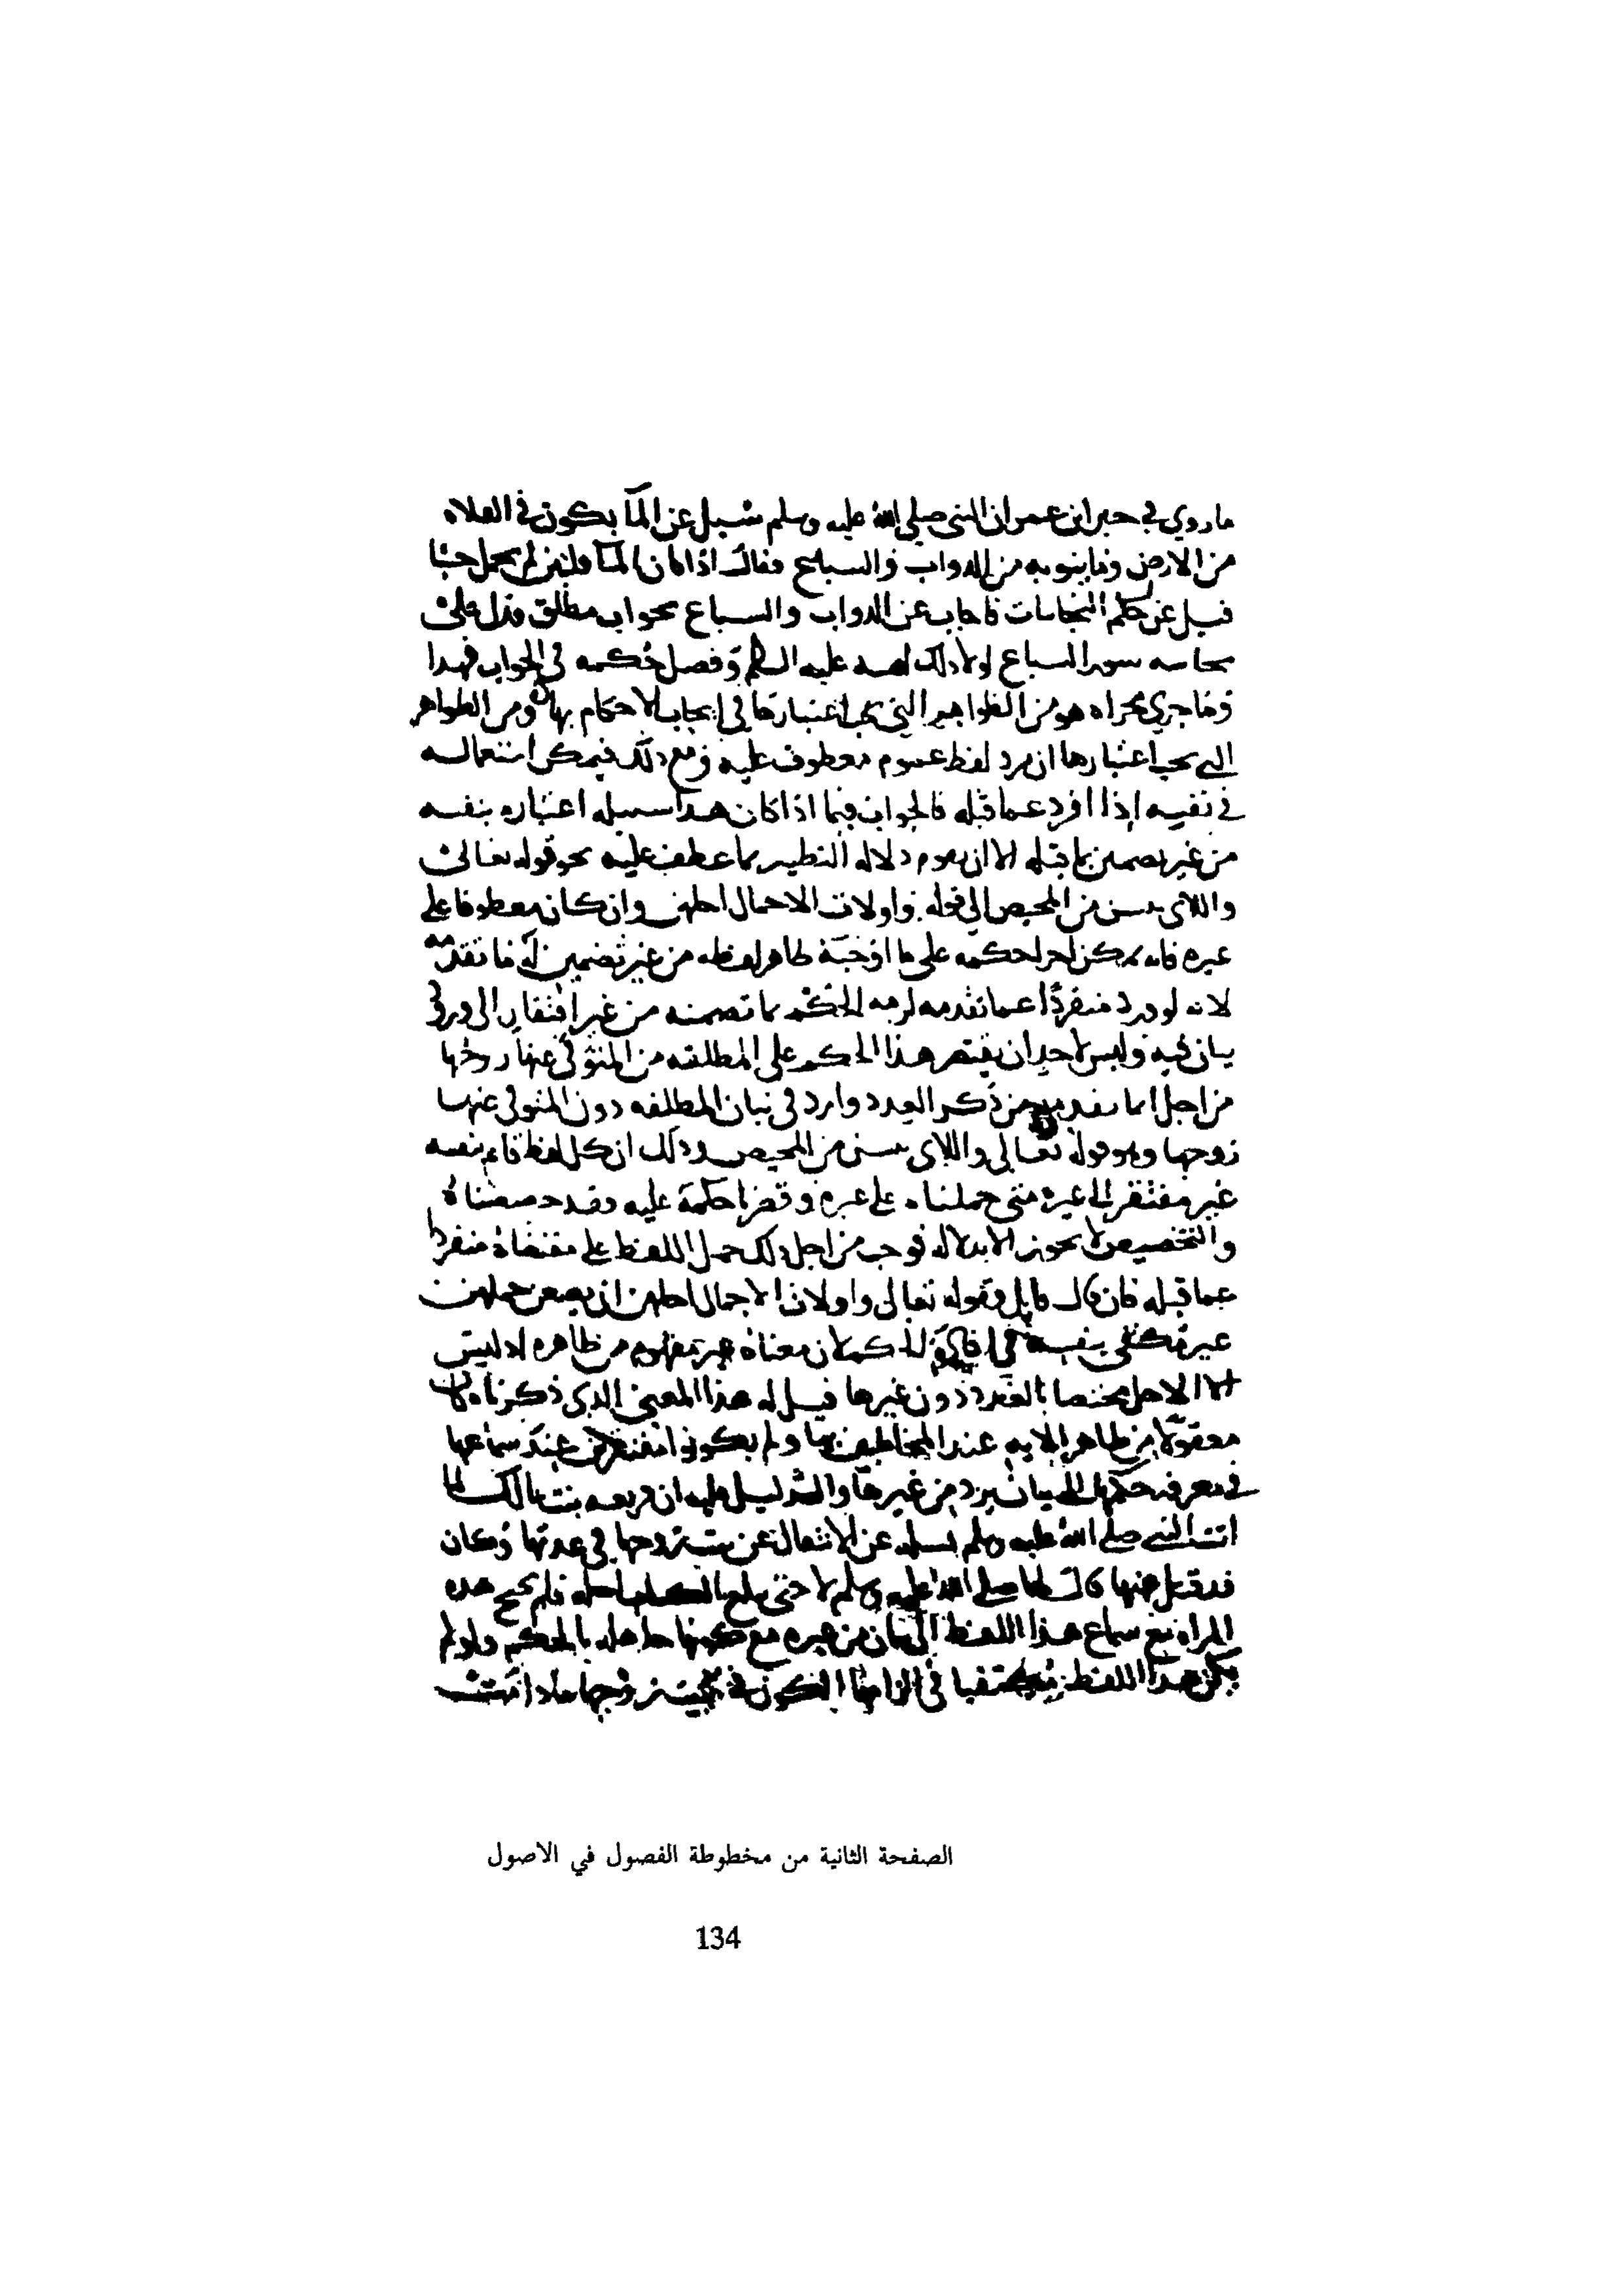 ما روي في خبر ابن عمر ان النبي صلى الله عليه وسلم سئل عن الماء يكون في الفلاه
من الارض وما ينوبه من الدواب والسباع فقال اذا كان الماء قلتين لم يحمل خبثا
فسئل عن حكم النجاسات فاجاب عن الدواب والسباع بجواب مطلق فدل على
نجاسه سور السباع لولا ذلك عليه السلم وفصل حكمه في الجواب فهذا
وما جري مجراه هو من الظواهر التي يجب اعتبارها في ايجاب الاحكام بها ومن الظواهر
التي يجب اعتبارها ان يرد لفظ عموم معطوف عليه ومع ذلك فيمكن استعماله
في نفسه إذا افرد عما قبله فالجواب فيما اذا كان هذا سبيله اعتباره بنفسه
من غير تضمين بما قبله الا ان يقوم دلاله التضمين بما عطف عليه نحو قوله تعالى
واللاى يئسن من المحيض الى قوله واولات الاحمال اجلهن وان كان معطوفا على
غيره فانه يمكن اجرا حكمه على ما اوجبه ظاهر لفظه من غير تضمين له بما تقدمه
لانه لو ورد منفردا عما تقدمه لزمه الحكم بما تضمنه من غير افتقار الى ورود
بيان فيه وليس لاحد ان يقتصر هذا الحكم على المطلقه من المتوفى عنها زوجها
من اجل ما تقدمه من ذكر العدد وارد في بيان المطلقه دون المتوفى عنها
زوجها وهو قوله تعالى واللاى يئسن من المحيض وذلك ان كل لفظ قايم بنفسه
غير مفتقر الى غيره متى حملناه على غيره وقصرنا حكمه عليه فقد خصصناه
والتخصيص لا يجوز الا بدلاله فوجب من اجل ذلك حمل اللفظ على مقتضاه منفردا
عما قبله فان قال قايل فقوله تعالى واولات الاحمال اجلهن ان يضعن حملهن
غير مكتفى بنفسه في افاده الحكم لان معناه غير مفهوم من ظاهره اذ ليس
الاجل مختصا بالعدد دون غيرها قيل له هذا المعنى الذى ذكرناه كان
معقولا من ظاهر الايه عند المخاطبين بها ولم يكونوا مفتقرين عند سماعها
في معرفه حكمها الى بيان يرد من غيرها والدليل عليه ان فريعه بنت مالك لما
اتت النبي صلى الله عليه وسلم تسله عن الانتقال عن بيت زوجها في عدتها وكان
قد قتل عنها قال لها صلى الله عليه وسلم لا حتى يبلغ الكتاب اجله فلم تحتج هذه
المراه مع سماع هذا اللفظ الى بيان من غيره مع كونها جاهله بالحكم ولو لم
يكن هذا اللفظ مكتفيا في الزامها الكون في بيت زوجها
الصفحة الثانية من مخطوطة الفصول في الاصول
134